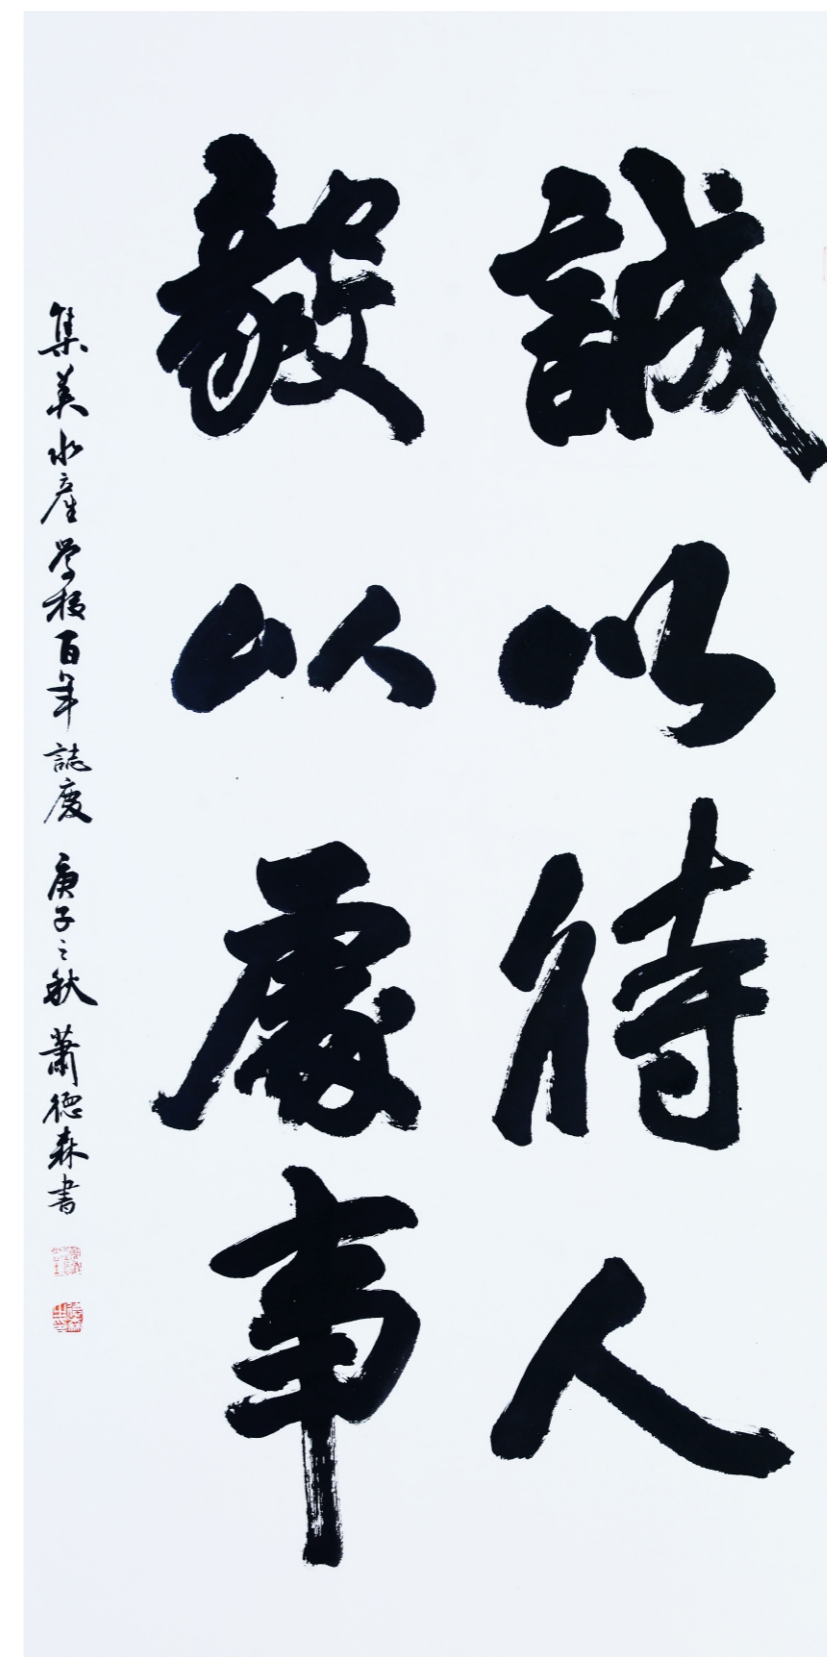 誠以待人
毅以處事
集美水產學校百年誌慶 庚子之秋 蕭德森書